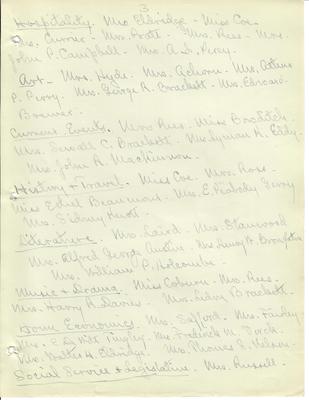 3
Hospitality. Mrs. Eldridge - Miss Coe.
Mrs. Currier - Mrs. Pratt - Mrs. Rees - Mrs.
John P. Campbell - Mrs. A. D. Perry.
Art - Mrs. Hyde. Mrs. Acheson - Mrs.
P. Perry. Mrs. George R. Brackett - Mrs. Edward
Brewer.
Current Events. Mrs. Rees. Miss
Mrs. Sewall C. Brackett - Mrs. Lyman K. Eddy.
Mrs. John A. MacKinnon.
History & Travel. Miss Coe. Mrs. Ross.
Miss Ethel Beaumont. Mrs. E. Peabody Gerry
Mrs. Sidney
Literature. Mrs. Laird. Mrs. Stanwood
Mrs. Alfred George Austin. Mrs.
Mrs. William P. Holcombe.
Music & Drama. Miss Coburn - Mrs. Rees.
Mrs. Harry A. Davies. Mrs. Brackett
Home Economics. Mrs. Safford. Mrs. Hanley.
Mrs. E. DeWitt Mrs. Frederick M.
Mrs. Walter H. Eldridge. Mrs. Thomas S.
Social Service & Legislative. Mrs. Russell.